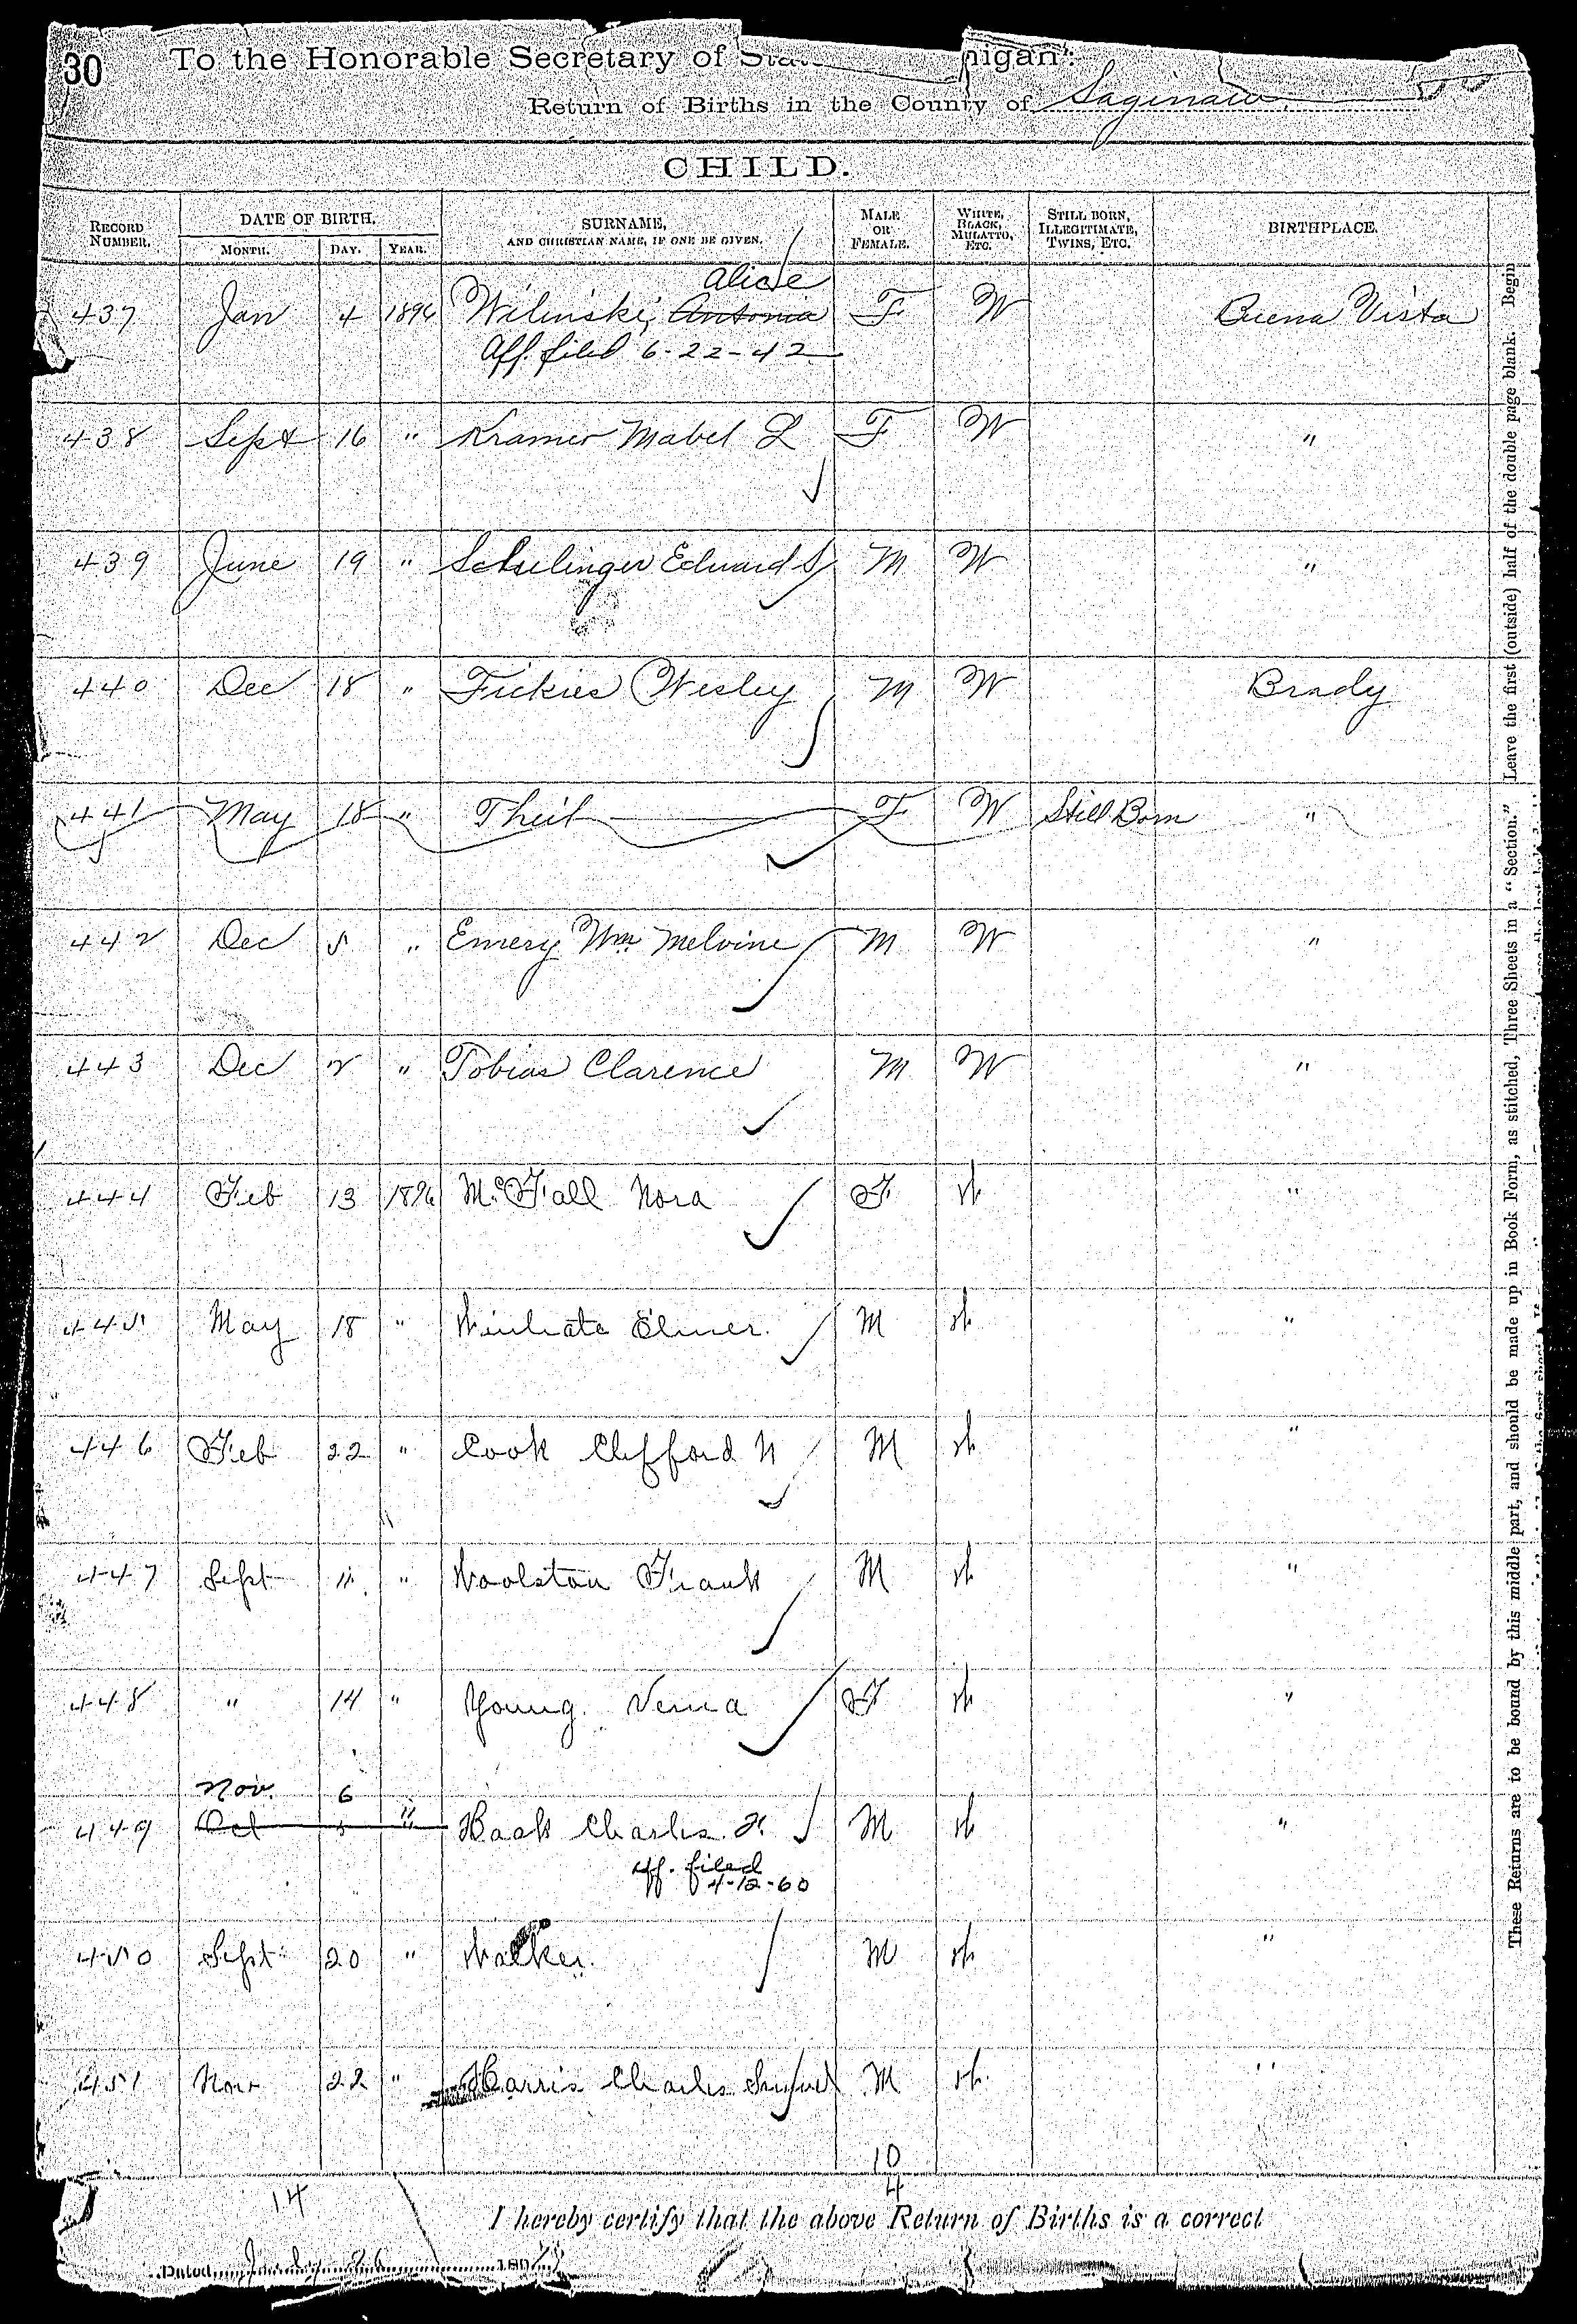 30 To the Honorable Secretary of Sta... ...higan:
Return of Births in the County of Saginaw
CHILD.
RECORD NUMBER. DATE OF BIRTH. MONTH. DAY. YEAR. SURNAME, AND CHRISTIAN NAME, IF ONE BE GIVEN. MALE OR FEMALE. WHITE, BLACK, MULATTO, ETC. STILL BORN, ILLEGITIMATE, TWINS, ETC. BIRTHPLACE.
Alice
437 Jan 4 1896 Wilinski, Antonia F W Buena Vista
Aff. filed 6-22-42
438 Sept 16 " Kramer Mabel L F W "
439 June 19 " Edward S M W "
440 Dec 18 " Wesley M W Brady
441 May 18 " F W Still Born "
442 Dec 5 " Emery Wm Melvine M W "
443 Dec 2 " Tobias Clarence M W "
444 Feb 13 1896 McFall Nora F W "
445 May 18 " Elmer. M W "
446 Feb 22 " Cook Clifford N M W "
447 Sept 11 " Woolston Frank M W "
448 " 14 " Young Verna F W "
Nov. 6
449 Oct 5 " Haak Charles F. M W "
aff. filed
4-12-60
450 Sept 20 " Walker. M W "
451 Nov 22 " Harris Charles M W "
10
14 4
I hereby certify that the above Return of Births is a correct
Dated 26 189
These Returns are to be bound by this middle part, and should be made up in Book Form, as stitched, Three Sheets in a "Section." Leave the first (outside) half of the double page blank. Begin